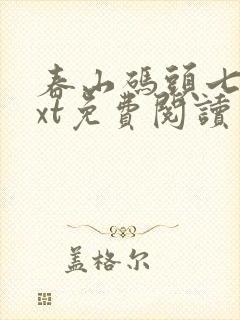 春山碼頭七
xt免費閱讀
盖格尔